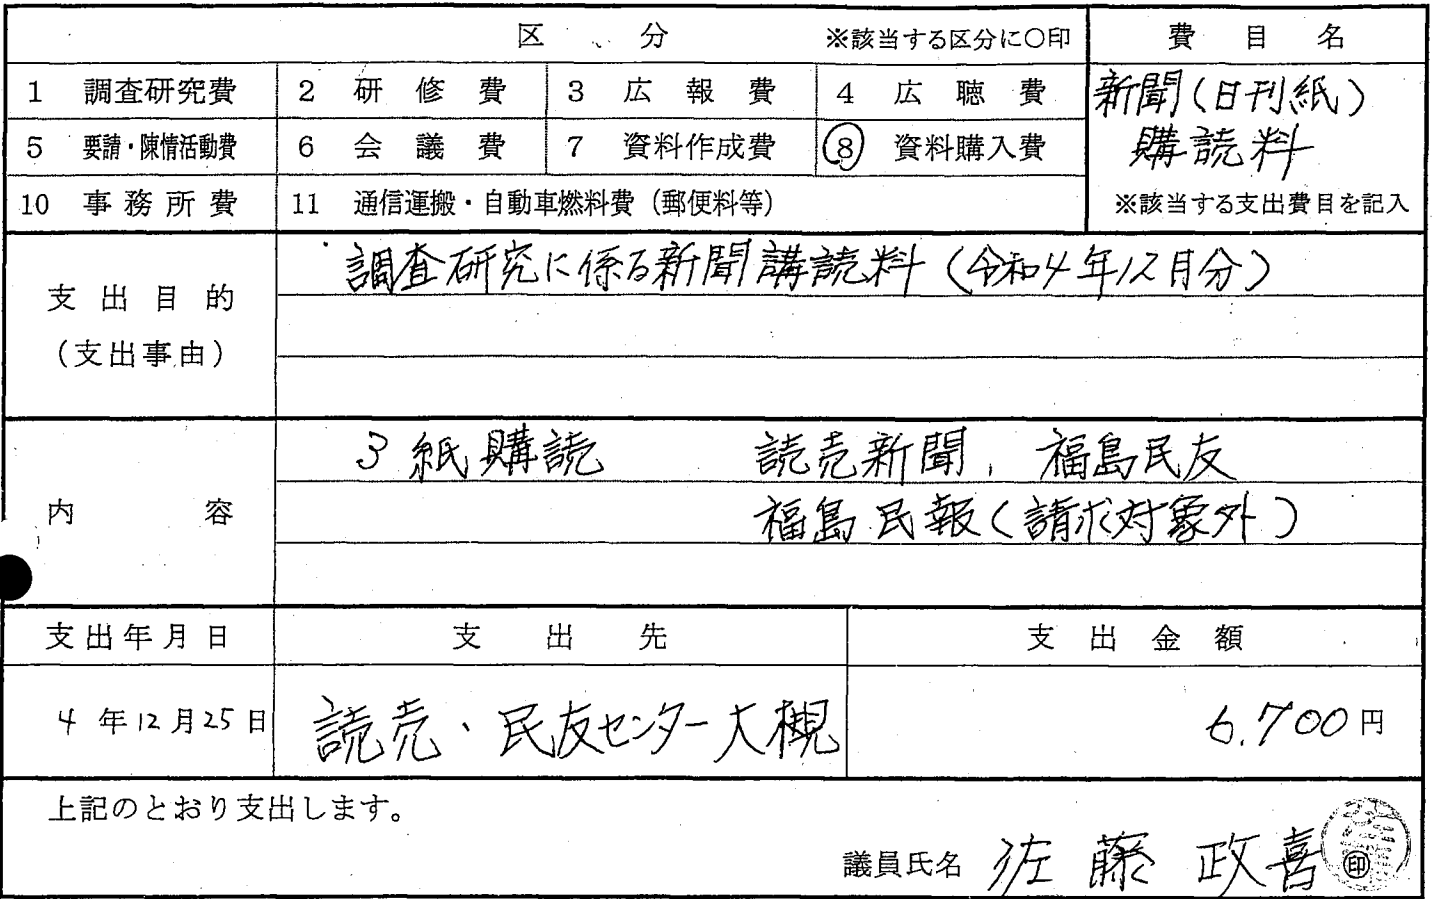 区 分 ※該当する区分に○印 費目名
1 調査研究費 2 研修費 3 広報費 4 広聴費 新聞(日刊紙)
5 要請・陳情活動費 6 会議費 7 資料作成費 8 資料購入費 購読料
10 事務所費 11 通信運搬・自動車燃料費(郵便料等) ※該当する支出費目を記入
調査研究に係る新聞講読料(令和4年12月分)
支出目的
(支出事由)
3紙購読 読売新聞, 福島民友
内容 福島民報(請求対象外)
支出年月日 支出先 支出金額
4年12月25日 読売・民友センター大槻 6.700円
上記のとおり支出します。
議員氏名 佐藤 政喜 印